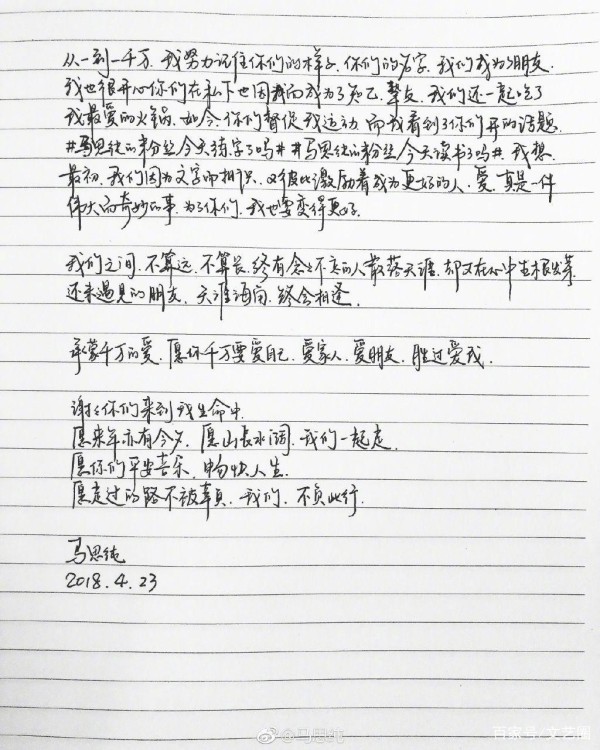 从一到一千万. 我努力记住你们的样子. 你们的名字. 我们成为朋友.
我也很开心你们在私下也因我而成为了知己、挚友. 我们还一起吃了
我最爱的火锅. 如今. 你们督促我运动. 而我看到了你们开的话题.
#马思纯的粉丝今天练字了吗# #马思纯的粉丝今天读书了吗#. 我想.
最初. 我们因为文字而相识. 又彼此激励着成为更好的人. 爱. 真是一件
伟大而奇妙的事. 为了你们. 我也要变得更好.
我们之间. 不算远. 不算长. 终有念念不忘的人散落天涯. 却又在心中生根发芽.
还未遇见的朋友. 天涯海角. 终会相逢.
承蒙千万的爱. 愿你千万要爱自己. 爱家人. 爱朋友. 胜过爱我.
谢谢你们来到我生命中.
愿来年亦有今夕. 愿山長水阔. 我们一起走.
愿你们平安喜乐. 畅快人生.
愿走过的路不被辜负. 我们. 不负此行.
马思纯
2018.4.23
@马思纯
百家号/文艺圈